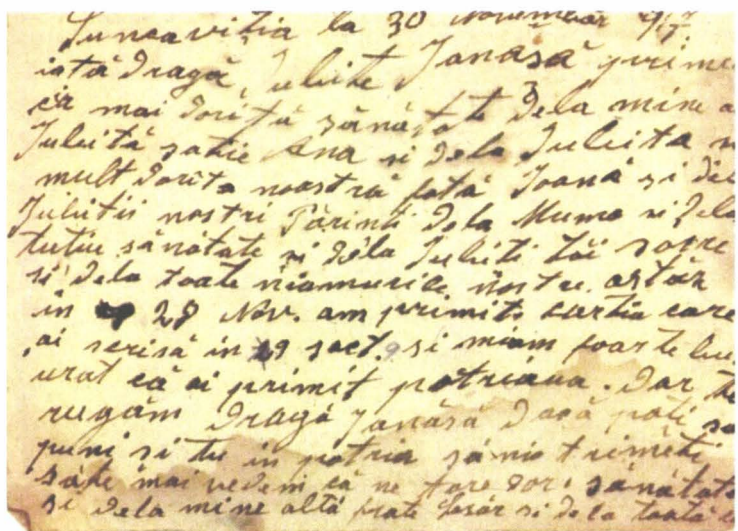 la 30 November 917
iată Dragă Iubite Ianăsă prime
că mai Dorită sănătate Dela mine a
Iubită soție Ana si Dela Iubita n
mult Dorita noastră fată Ioana si del
Iubitii nostri Părinti Dela Muma si Dela
tutiu sănătate si Dela Iubiti tăi socre
si Dela toate niamurile nostre. astăz
in 28 Nov. am primit cartia care
ai scrisă in 29 soct. si miam foarte bu
urat că ai primit patriaua. Dar te
rugăm Dragă Ianăsă Dacă poti sa
puni si tu in patria sănio trimeti
săte mai vedem că ne tare Dor: sănătate
si Dela mine altă frate si de la toată